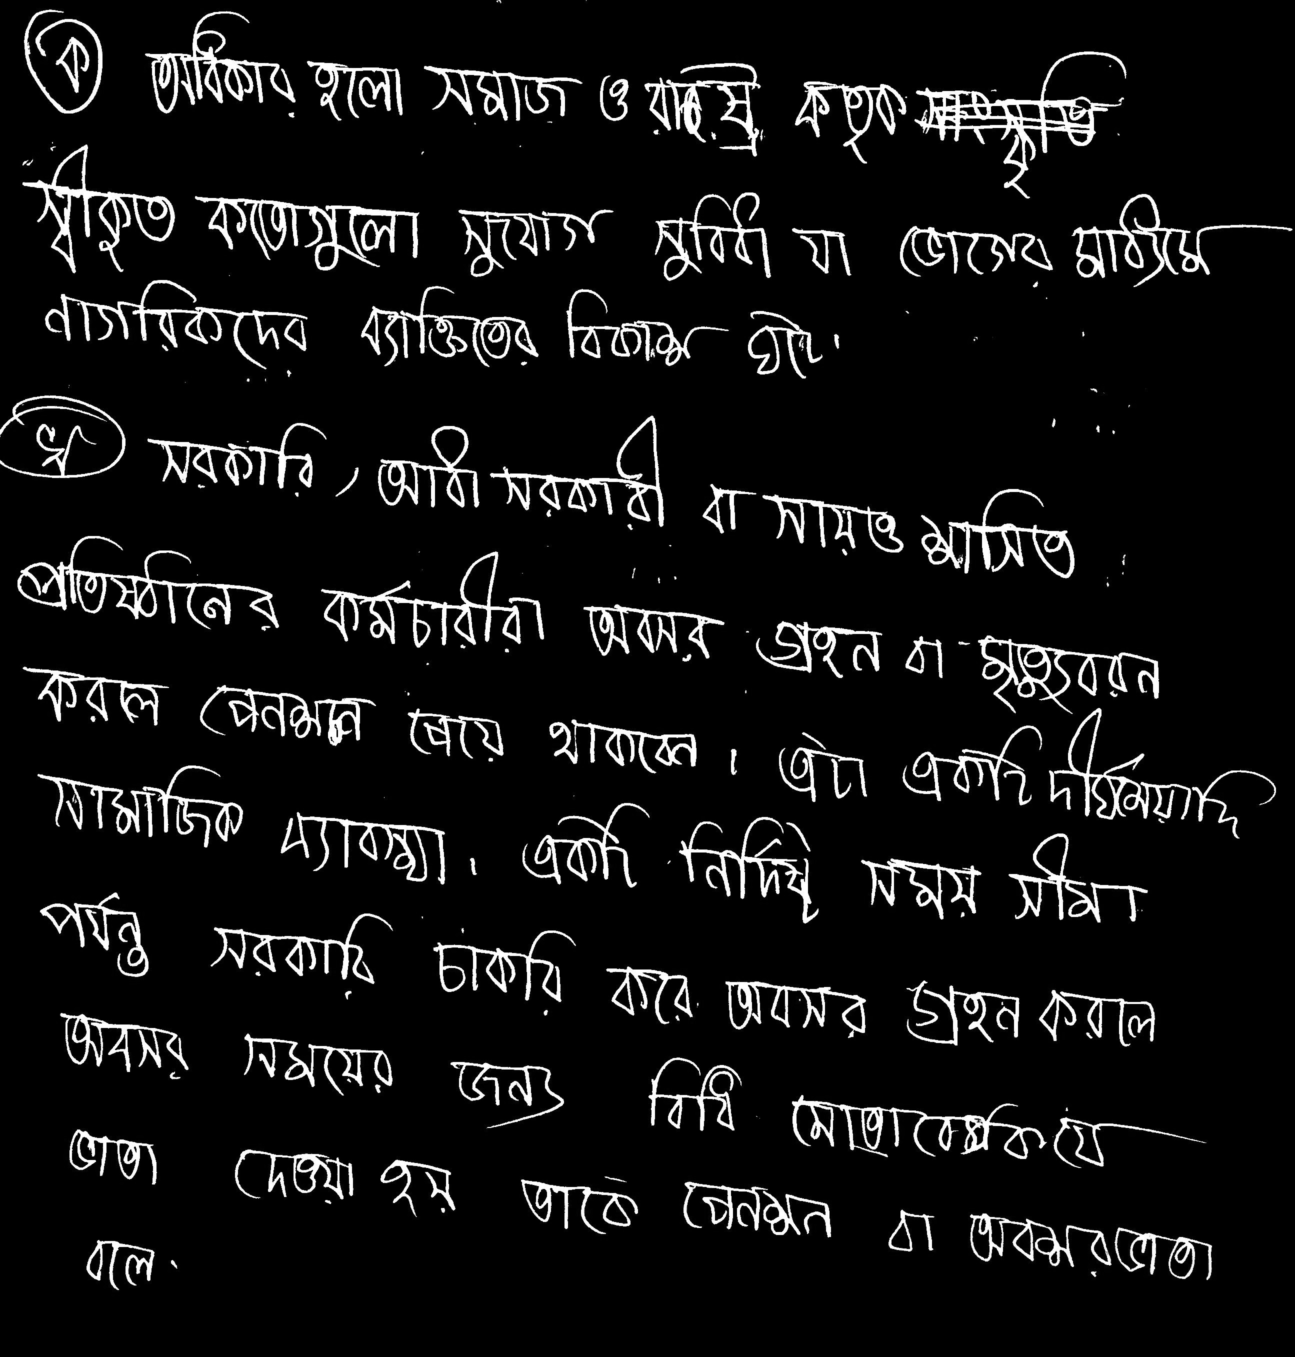 ক অধিকার হলো সমাজ ও রাষ্ট্র কতৃক
স্বীকৃত কতোগুলো সুযোগ সুবিধা যা ভোগের মাধ্যমে
নাগরিকদের ব্যাক্তিতের বিকাশ ঘটে।
খ সরকারি, আধা সরকারী বা সায়ত্ত শাসিত
প্রতিষ্ঠানের কর্মচারীরা অবসর গ্রহন বা মৃত্যুবরন
করলে পেনশন পেয়ে থাকবেন। এটা একটি দীর্ঘমেয়াদি
সামাজিক ব্যাবস্থা। একটি নির্দিষ্ট সময় সীমা
পর্যন্ত সরকারি চাকরি করে অবসর গ্রহন করলে
অবসর সময়ের জন্য বিধি মোতাবেক যে
ভাতা দেওয়া হয় তাকে পেনশন বা অবশরভাতা
বলে।